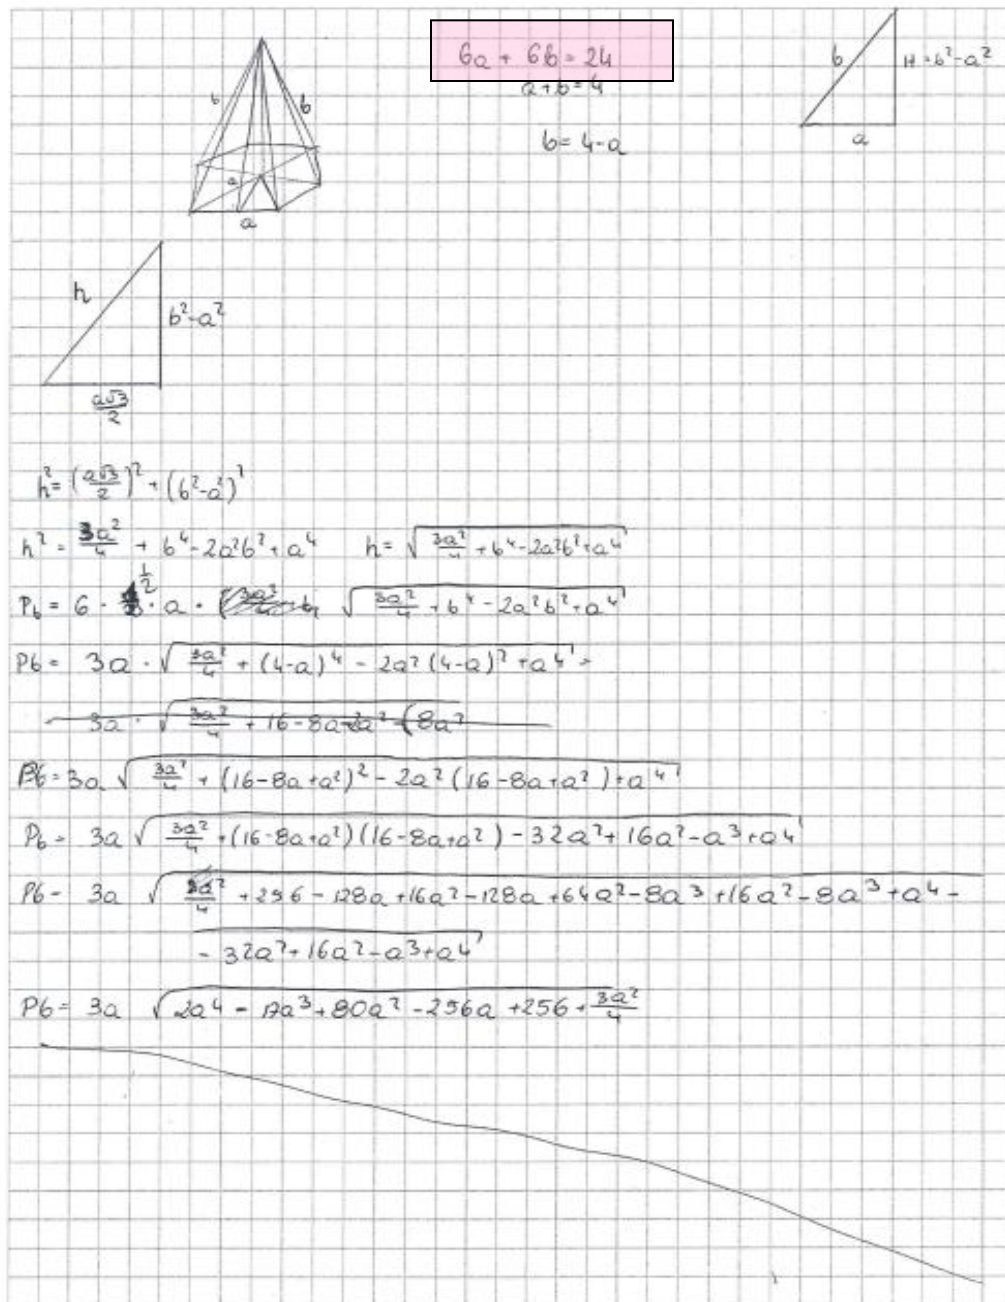 6a + 6b = 24
a+b=4
b = 4-a
b
b
a
a
b
H = b²-a²
a
h
b²-a²
a√3/2
h² = (a√3/2)² + (b²-a²)²
h² = 3a²/4 + b⁴ - 2a²b² + a⁴ h = √(3a²/4 + b⁴ - 2a²b² + a⁴)
Pb = 6 · 1/2 · a · √(3a²/4 + b⁴ - 2a²b² + a⁴)
Pb = 3a · √(3a²/4 + (4-a)⁴ - 2a²(4-a)² + a⁴) =
3a · √(3a²/4 + 16-8a+2a² - (8a²
Pb = 3a √(3a²/4 + (16-8a+a²)² - 2a²(16-8a+a²) + a⁴)
Pb = 3a √(3a²/4 + (16-8a+a²)(16-8a+a²) - 32a² + 16a² - a³ + a⁴)
Pb = 3a √(3a²/4 + 256 - 128a + 16a² - 128a + 64a² - 8a³ + 16a² - 8a³ + a⁴ -
- 32a² + 16a² - a³ + a⁴)
Pb = 3a √(2a⁴ - 17a³ + 80a² - 256a + 256 + 3a²/4)